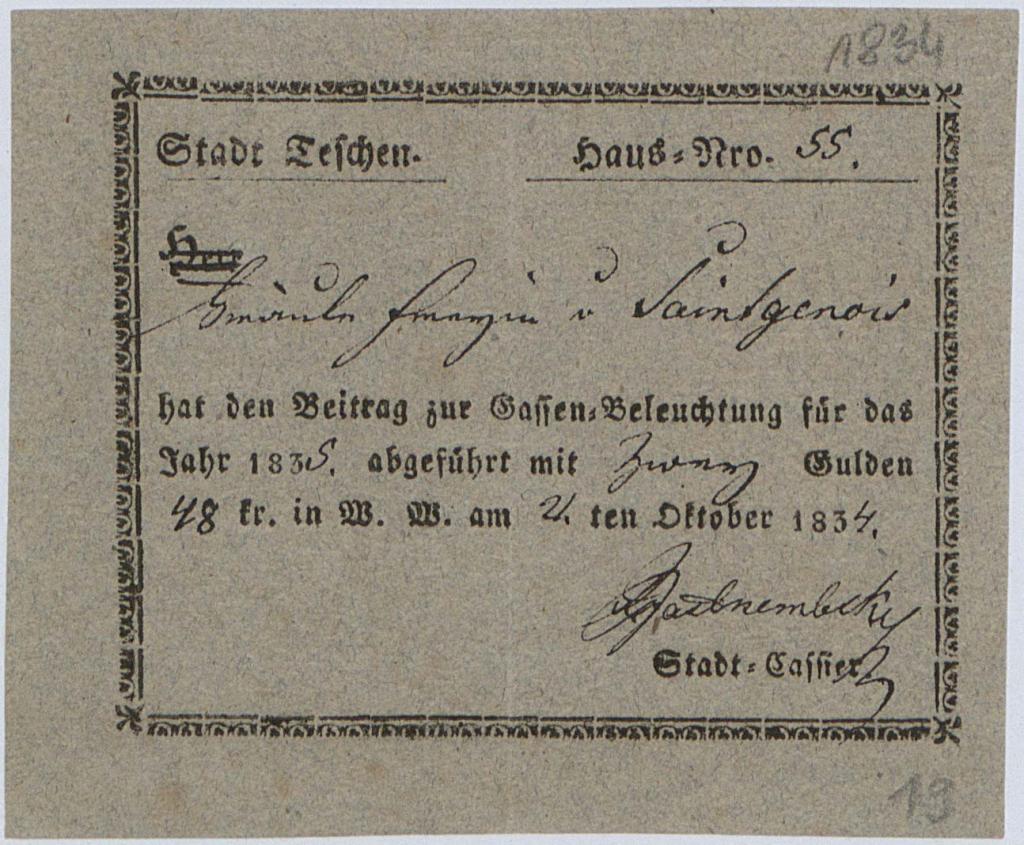 1834
Stadt Teschen. Haus-Nro. 55.
Herr
Fräule Freyin v Saintgenois
hat den Beitrag zur Gassen-Beleuchtung für das
Jahr 1835. abgeführt mit Zwey Gulden
48 kr. in W. W. am 2. ten Oktober 1834.
Stadt-Cassier
19